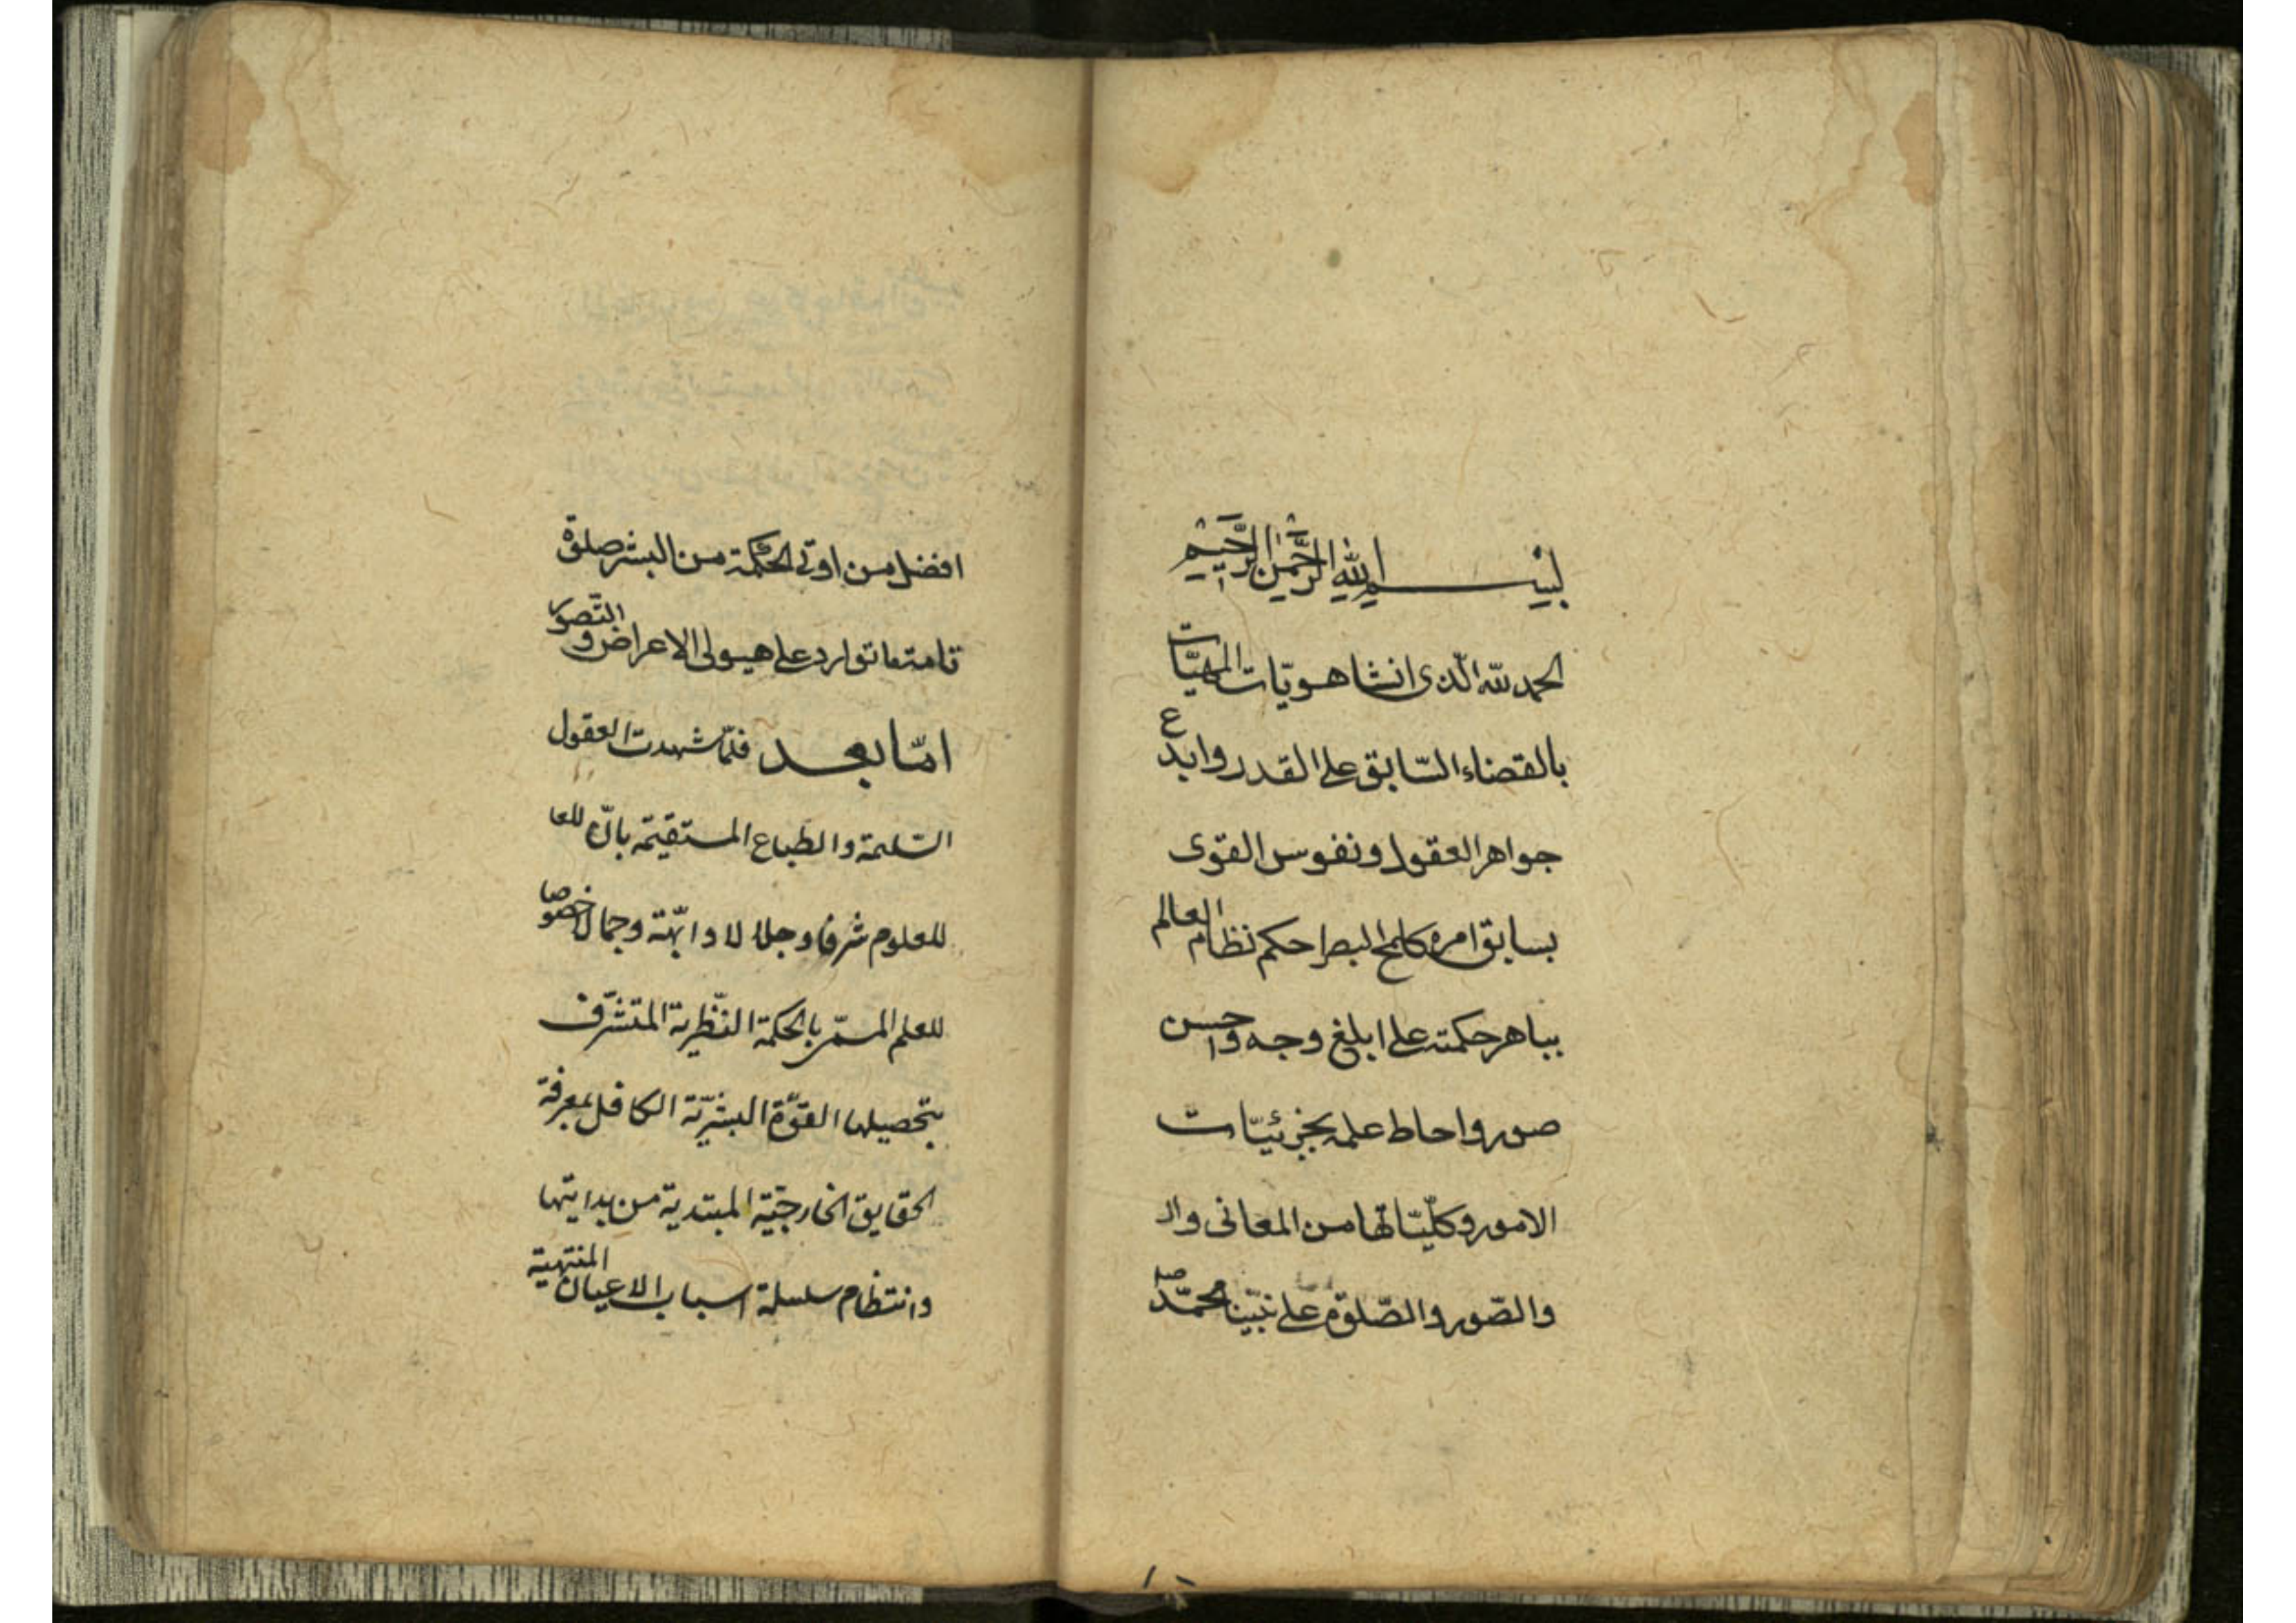 بسم الله الرحمن الرحيم
الحمد لله الّذى انشا هويّات المهيّات
بالقضاء السّابق على القدر وابدع
جواهر العقول ونفوس القوى
بسابق امره كلمح البصر احكم نظام العالم
بباهر حكمته على ابلغ وجه واحسن
صور واحاط علمه بجزئيّات
الامور وكلّيّاتها من المعانى وال
والصّور والصّلوة على نبيّنا محمّد صلـ
افضل من اوتى الحكمة من البشر صلوة
تامة ما توارد على هيولى الاعراض والتّصور
امّا بعد فلمّا شهدت العقول
السّليمة والطباع المستقيمة بانّ للعا
للعلوم شرفا وجلالا وابّهة وجمالا خصوصا
للعلم المسمّى بالحكمة النّظرية المتشرّف
بتحصيلها القوّة البشريّة الكافل بمعرفة
الحقايق الخارجيّة المبتدية من بدايتها
وانتظام سلسلة اسباب الاعيان المنتهية